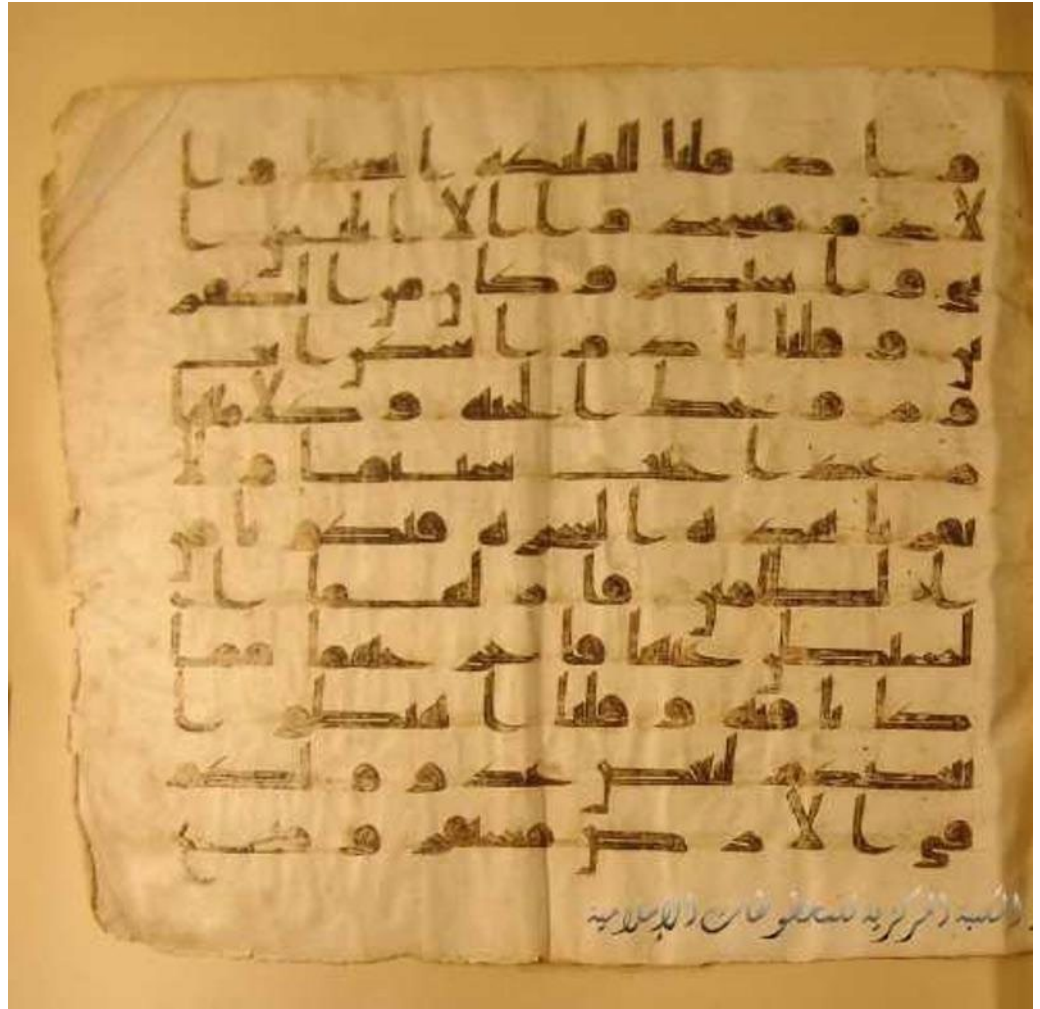 واذ قلنا للملئكه اسجدوا
لادم فسجدوا الا ابليس ا
بى واستكبر وكان من الكفر
ين وقلنا يادم اسكن انت
وزوجك الجنه وكلا منها
رغدا حيث شئتما ولا
تقربا هذه الشجره فتكونا من
الظلمين فازلهما ا
لشيطن عنها فاخرجهما مما
كانا فيه وقلنا اهبطوا
بعضكم لبعض عدو ولكم
في الارض مستقر ومتع
المكتبة المركزية للمخطوطات الإسلامية